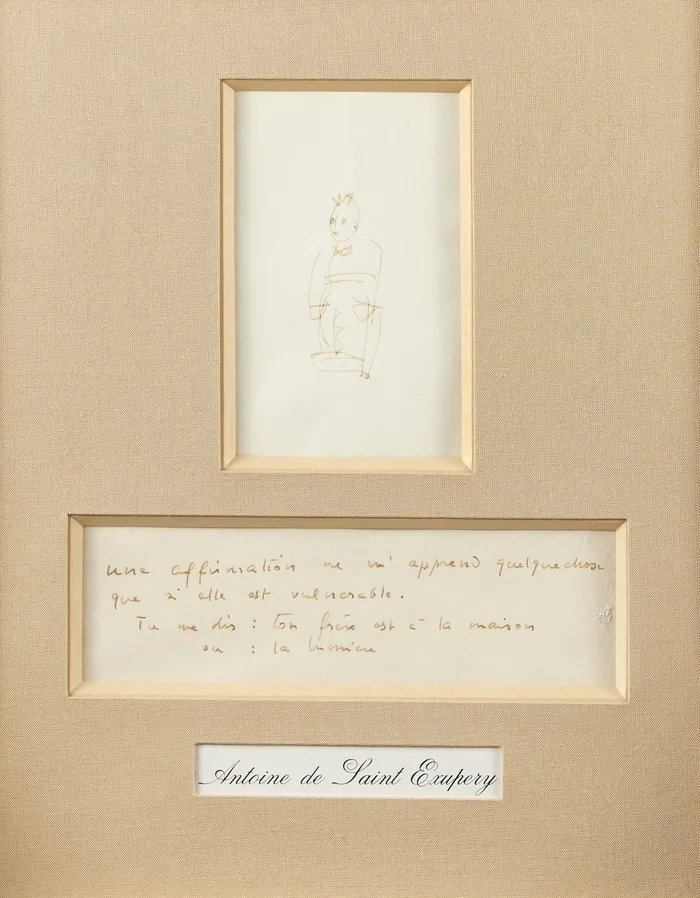 une affirmation ne m'apprend quelquechose
que si elle est vulnerable.
Tu me dis : ton frère est à la maison
ou : la lumière
Antoine de Saint Exupery